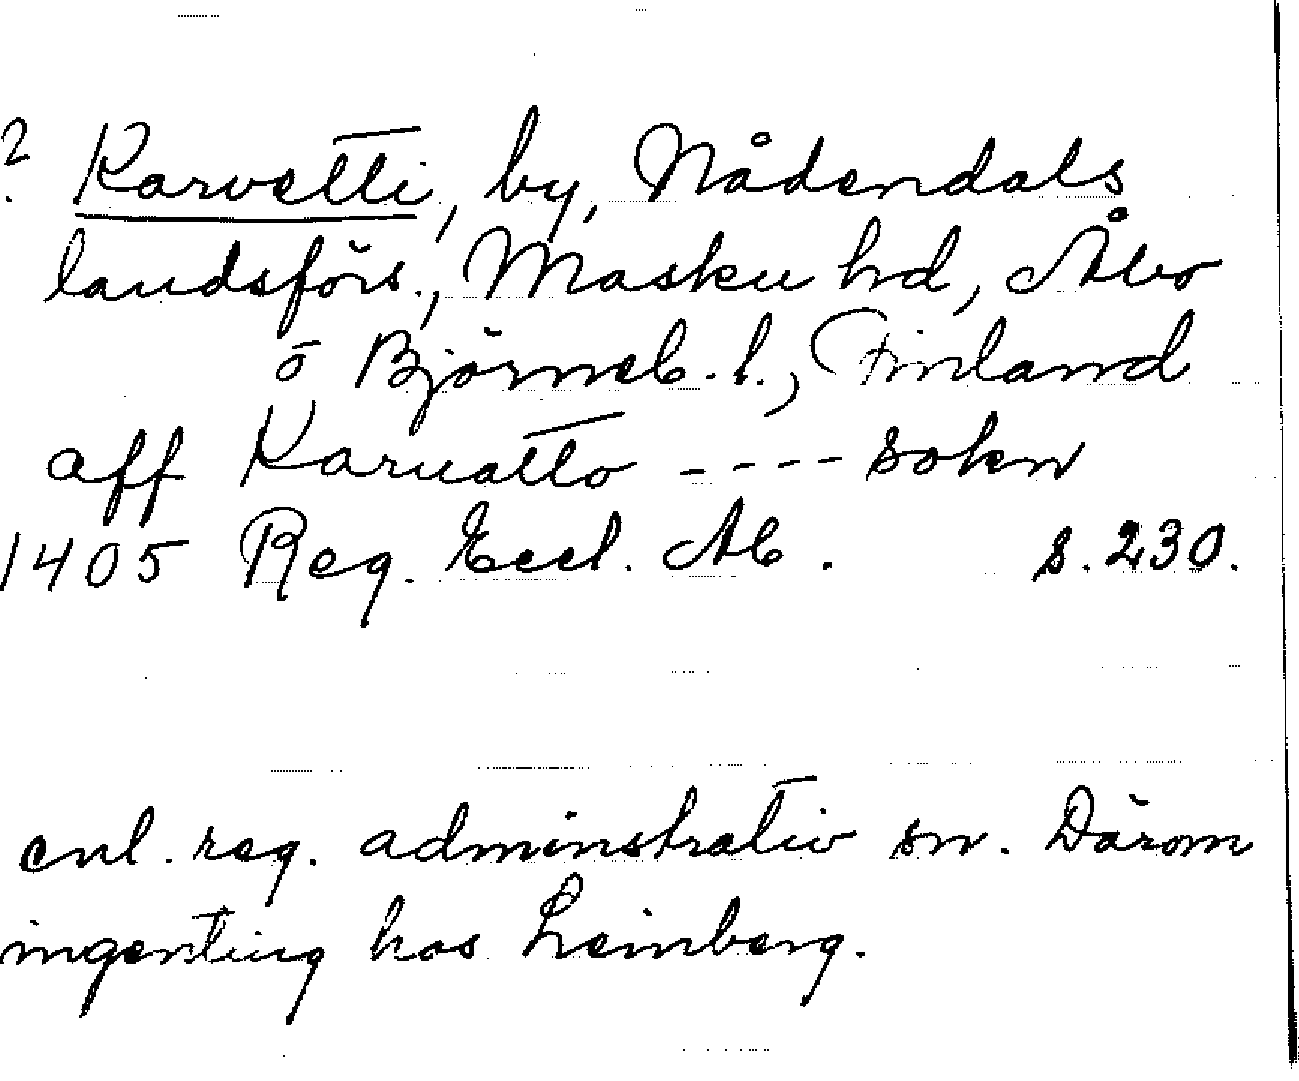 ? Karvetti, by, Nådendals
landsförs., Masku hd, Åbo
o Björneb. l., Finland
aff Karuatto ---- sokn
1405 Reg. Eccl. Ab. s. 230.
enl. reg. adminstrativ sn. Därom
ingenting hos Leinberg.